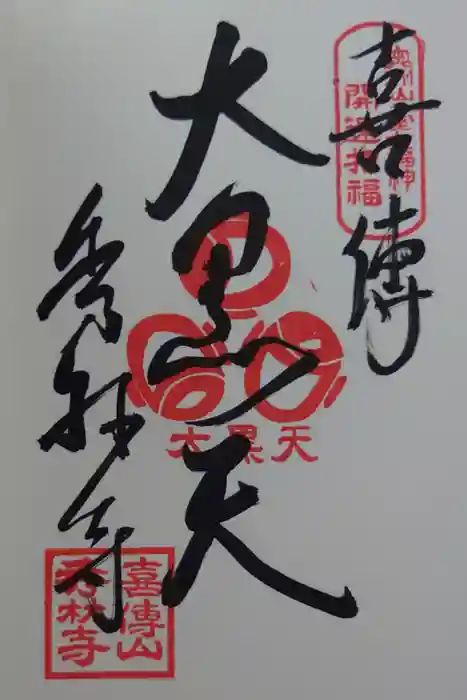 奥州仙臺七福神
開運招福
喜傳
大黒天
大黒天
秀林寺
喜傳山
秀林寺